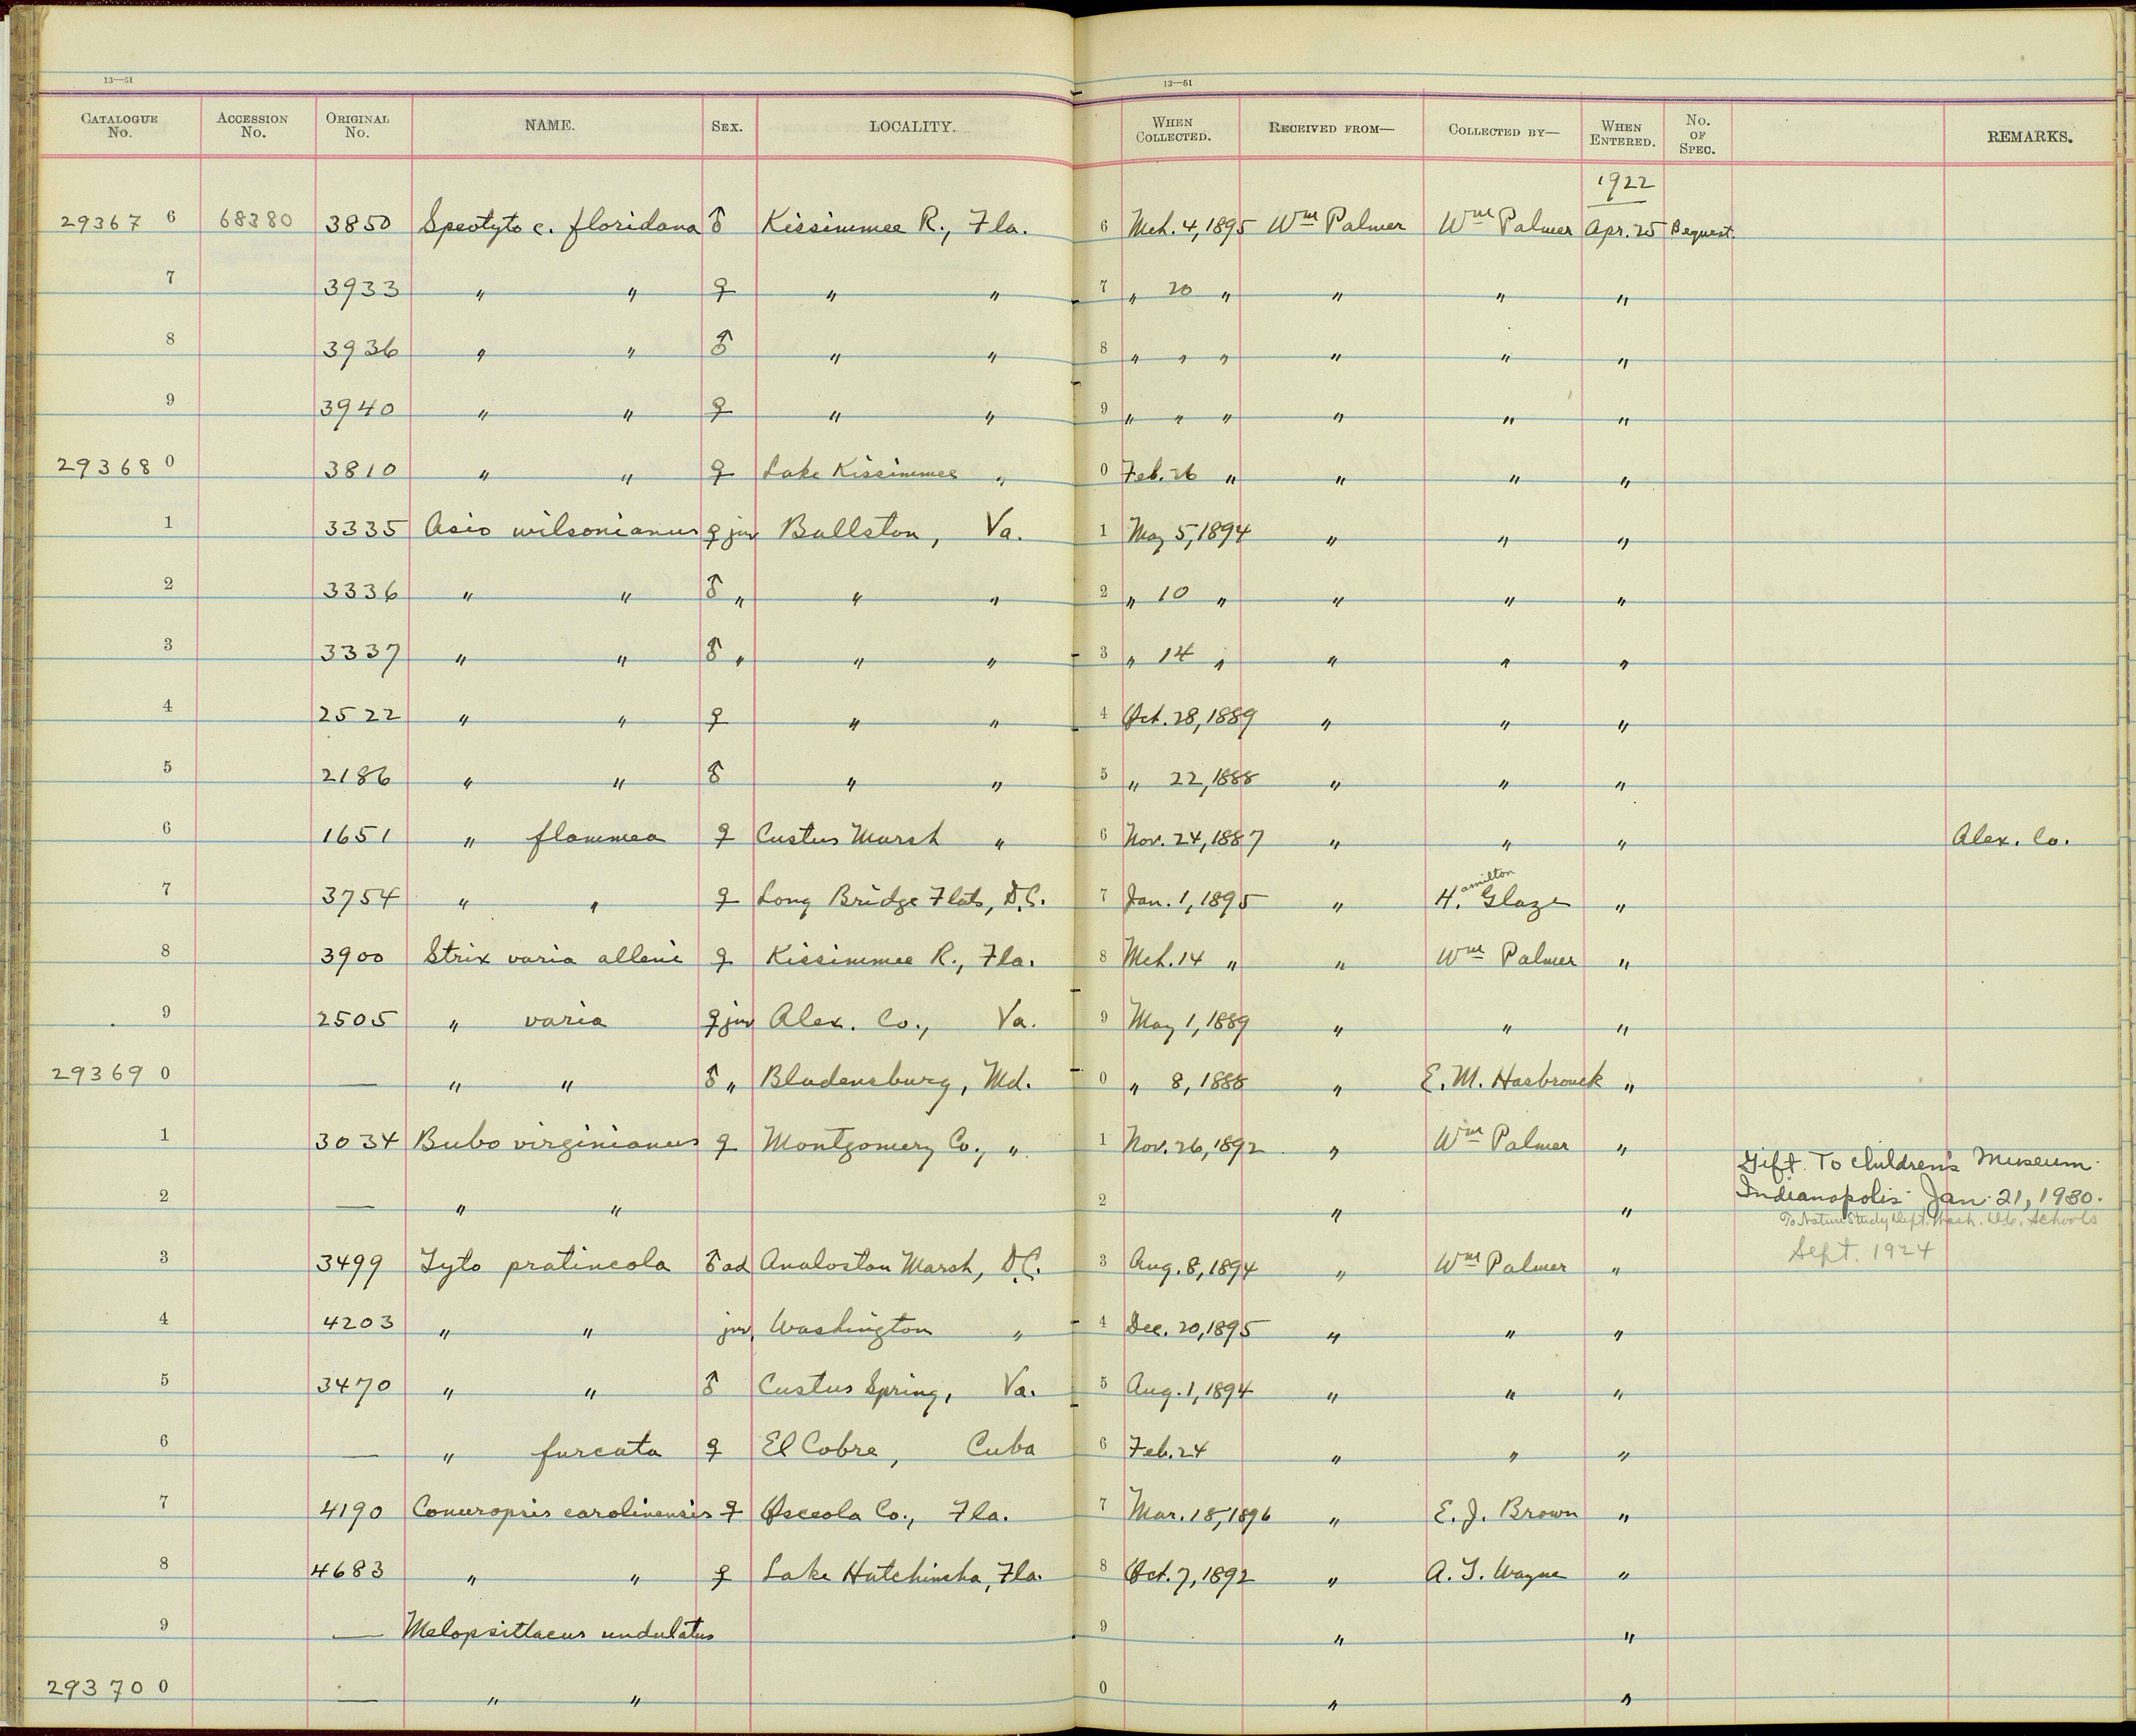 13—51 13—51
CATALOGUE No. ACCESSION No. ORIGINAL No. NAME. SEX. LOCALITY. WHEN COLLECTED. RECEIVED FROM— COLLECTED BY— WHEN ENTERED. No. OF SPEC. REMARKS.
1922
29367 6 68380 3850 Speotyto c. floridana ♂ Kissimmee R., Fla. 6 Mch. 4, 1895 Wm Palmer Wm Palmer Apr. 25 Bequest.
7 3933 " " ♀ " " 7 " 20 " " " "
8 3936 " " ♂ " " 8 " " " " " "
9 3940 " " ♀ " " 9 " " " " " "
29368 0 3810 " " ♀ Lake Kissimmee " 0 Feb. 26 " " " "
1 3335 Asio wilsonianus ♀ juv Ballston, Va. 1 May 5, 1894 " " "
2 3336 " " ♂ " " " 2 " 10 " " " "
3 3337 " " ♂ " " " 3 " 14 " " " "
4 2522 " " ♀ " " 4 Oct. 28, 1889 " " "
5 2186 " " ♂ " " 5 " 22, 1888 " " "
6 1651 " flammea ♀ Custus Marsh " 6 Nov. 24, 1887 " " " Alex. Co.
7 3754 " " ♀ Long Bridge Flats, D.C. 7 Jan. 1, 1895 " Hamilton Glaze "
8 3900 Strix varia alleni ♀ Kissimmee R., Fla. 8 Mch. 14 " " Wm Palmer "
9 2505 " varia ♀ juv Alex. Co., Va. 9 May 1, 1889 " " "
29369 0 — " " ♂ " Bladensburg, Md. 0 " 8, 1888 " E. M. Hasbrouck "
1 3034 Bubo virginianus ♀ Montgomery Co., " 1 Nov. 26, 1892 " Wm Palmer "
Gift. To Children's Museum
2 — " " 2 " " Indianapolis Jan. 21, 1930.
To Nature Study Dept. Wash. D.C. Schools
Sept. 1924
3 3499 Tyto pratincola ♂ ad Analostan Marsh, D.C. 3 Aug. 8, 1894 " Wm Palmer "
4 4203 " " juv. Washington " 4 Dec. 20, 1895 " " "
5 3470 " " ♂ Custus Spring, Va. 5 Aug. 1, 1894 " " "
6 — " furcata ♀ El Cobre, Cuba 6 Feb. 24 " " "
7 4190 Conuropsis carolinensis ♀ Osceola Co., Fla. 7 Mar. 18, 1896 " E. J. Brown "
8 4683 " " ♀ Lake Hatchineha, Fla. 8 Oct. 7, 1892 " A. T. Wayne "
9 — Melopsittacus undulatus 9 " "
29370 0 — " " 0 " "